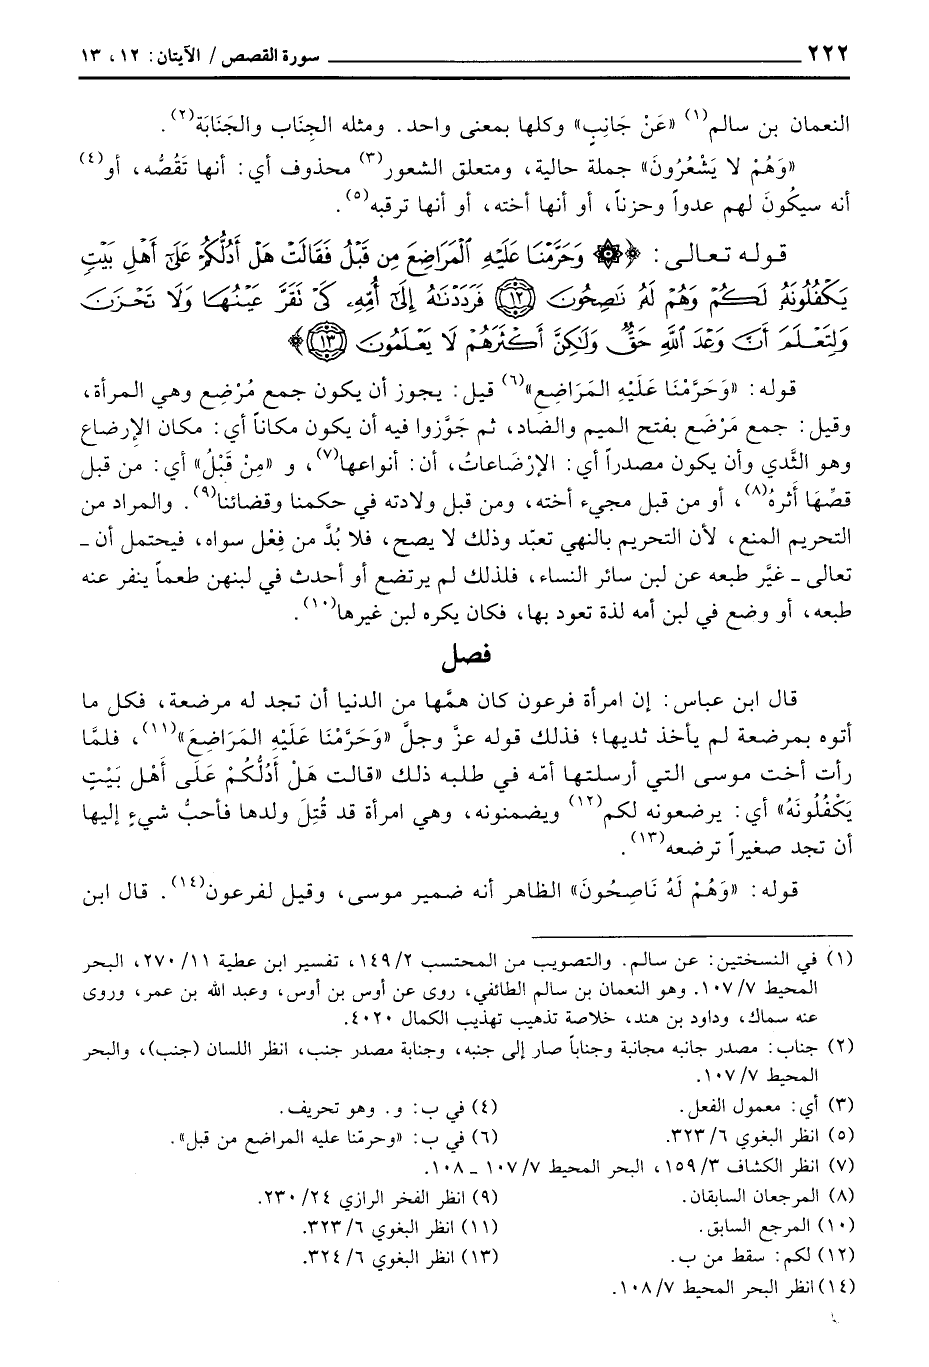 ٢٢٢ سورة القصص / الآيتان: ١٢ ، ١٣
النعمان بن سالم(١) «عَنْ جَانِبٍ» وكلها بمعنى واحد. ومثله الجِنَاب والجَنَابَة(٢).
«وَهُمْ لا يَشْعُرُونَ» جملة حالية، ومتعلق الشعور(٣) محذوف أي: أنها تَقُصُّه، أو(٤)
أنه سيكُونَ لهم عدواً وحزناً، أو أنها أخته، أو أنها ترقبه(٥).
قوله تعالى: ﴿۞ وَحَرَّمْنَا عَلَيْهِ ٱلْمَرَاضِعَ مِن قَبْلُ فَقَالَتْ هَلْ أَدُلُّكُمْ عَلَىٰٓ أَهْلِ بَيْتٍ
يَكْفُلُونَهُۥ لَكُمْ وَهُمْ لَهُۥ نَٰصِحُونَ (١٢) فَرَدَدْنَٰهُ إِلَىٰٓ أُمِّهِۦ كَىْ تَقَرَّ عَيْنُهَا وَلَا تَحْزَنَ
وَلِتَعْلَمَ أَنَّ وَعْدَ ٱللَّهِ حَقٌّ وَلَٰكِنَّ أَكْثَرَهُمْ لَا يَعْلَمُونَ (١٣)﴾
قوله: «وَحَرَّمْنَا عَلَيْهِ المَرَاضِع»(٦) قيل: يجوز أن يكون جمع مُرْضِع وهي المرأة،
وقيل: جمع مَرْضَع بفتح الميم والضاد، ثم جَوَّزوا فيه أن يكون مكاناً أي: مكان الإرضاع
وهو الثَّدي وأن يكون مصدراً أي: الإرْضَاعاتُ، أن: أنواعها(٧)، و «مِنْ قَبْلُ» أي: من قبل
قصِّهَا أَثرهُ(٨)، أو من قبل مجيء أخته، ومن قبل ولادته في حكمنا وقضائنا(٩). والمراد من
التحريم المنع، لأن التحريم بالنهي تعبّد وذلك لا يصح، فلا بُدَّ من فِعْل سواه، فيحتمل أن ـ
تعالى ـ غيَّر طبعه عن لبن سائر النساء، فلذلك لم يرتضع أو أحدث في لبنهن طعماً ينفر عنه
طبعه، أو وضع في لبن أمه لذة تعود بها، فكان يكره لبن غيرها(١٠).
فصل
قال ابن عباس: إن امرأة فرعون كان همَّها من الدنيا أن تجد له مرضعة، فكل ما
أتوه بمرضعة لم يأخذ ثديها؛ فذلك قوله عزَّ وجلَّ «وَحَرَّمْنَا عَلَيْهِ المَرَاضِعَ»(١١)، فلمَّا
رأت أخت موسى التي أرسلتها أمّه في طلبه ذلك «قالت هَلْ أَدُلُّكُمْ عَلَى أَهْلِ بَيْتٍ
يَكْفُلُونَهُ» أي: يرضعونه لكم(١٢) ويضمنونه، وهي امرأة قد قُتِلَ ولدها فأحبُّ شيءٍ إليها
أن تجد صغيراً ترضعه(١٣).
قوله: «وَهُمْ لَهُ نَاصِحُونَ» الظاهر أنه ضمير موسى، وقيل لفرعون(١٤). قال ابن
(١) في النسختين: عن سالم. والتصويب من المحتسب ١٤٩/٢، تفسير ابن عطية ٢٧٠/١١، البحر
المحيط ١٠٧/٧. وهو النعمان بن سالم الطائفي، روى عن أوس بن أوس، وعبد الله بن عمر، وروى
عنه سماك، وداود بن هند، خلاصة تذهيب تهذيب الكمال ٤٠٢٠.
(٢) جناب: مصدر جانبه مجانبة وجناباً صار إلى جنبه، وجنابة مصدر جنب، انظر اللسان (جنب)، والبحر
المحيط ١٠٧/٧.
(٣) أي: معمول الفعل. (٤) في ب: و. وهو تحريف.
(٥) انظر البغوي ٣٢٣/٦. (٦) في ب: «وحرمّنا عليه المراضع من قبل».
(٧) انظر الكشاف ١٥٩/٣، البحر المحيط ١٠٧/٧ ـ ١٠٨.
(٨) المرجعان السابقان. (٩) انظر الفخر الرازي ٢٣٠/٢٤.
(١٠) المرجع السابق. (١١) انظر البغوي ٣٢٣/٦.
(١٢) لكم: سقط من ب. (١٣) انظر البغوي ٣٢٤/٦.
(١٤) انظر البحر المحيط ١٠٨/٧.